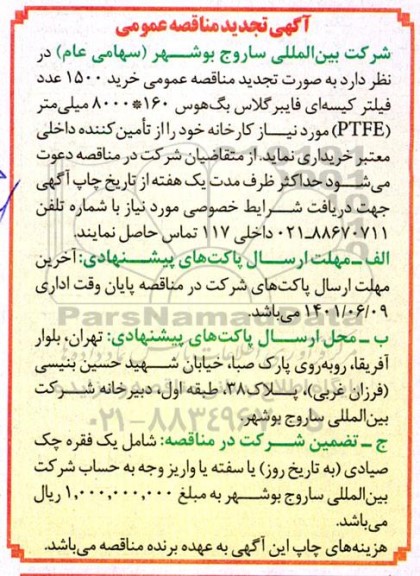 آگهی تجدید مناقصه عمومی
شرکت بین‌المللی ساروج بوشهر (سهامی عام) در
نظر دارد به صورت تجدید مناقصه عمومی خرید ۱۵۰۰ عدد
فیلتر کیسه‌ای فایبرگلاس بگ‌هوس ۱۶۰*۸۰۰۰ میلی‌متر
(PTFE) مورد نیاز کارخانه خود را از تأمین‌کننده داخلی
معتبر خریداری نماید. از متقاضیان شرکت در مناقصه دعوت
می‌شود حداکثر ظرف مدت یک هفته از تاریخ چاپ آگهی
جهت دریافت شرایط خصوصی مورد نیاز با شماره تلفن
۸۸۶۷۰۷۱۱-۰۲۱ داخلی ۱۱۷ تماس حاصل نمایند.
الف ـ مهلت ارسال پاکت‌های پیشنهادی: آخرین
مهلت ارسال پاکت‌های شرکت در مناقصه پایان وقت اداری
۱۴۰۱/۰۶/۰۹ می‌باشد.
ParsNamadData
ب ـ محل ارسال پاکت‌های پیشنهادی: تهران، بلوار
آفریقا، روبه‌روی پارک صبا، خیابان شهید حسین بنیسی
(فرزان غربی)، پلاک ۳۸، طبقه اول، دبیرخانه شرکت
بین‌المللی ساروج بوشهر.
ج ـ تضمین شرکت در مناقصه: شامل یک فقره چک
صیادی (به تاریخ روز) یا سفته یا واریز وجه به حساب شرکت
بین‌المللی ساروج بوشهر به مبلغ ۱,۰۰۰,۰۰۰,۰۰۰ ریال
می‌باشد.
هزینه‌های چاپ این آگهی به عهده برنده مناقصه می‌باشد.